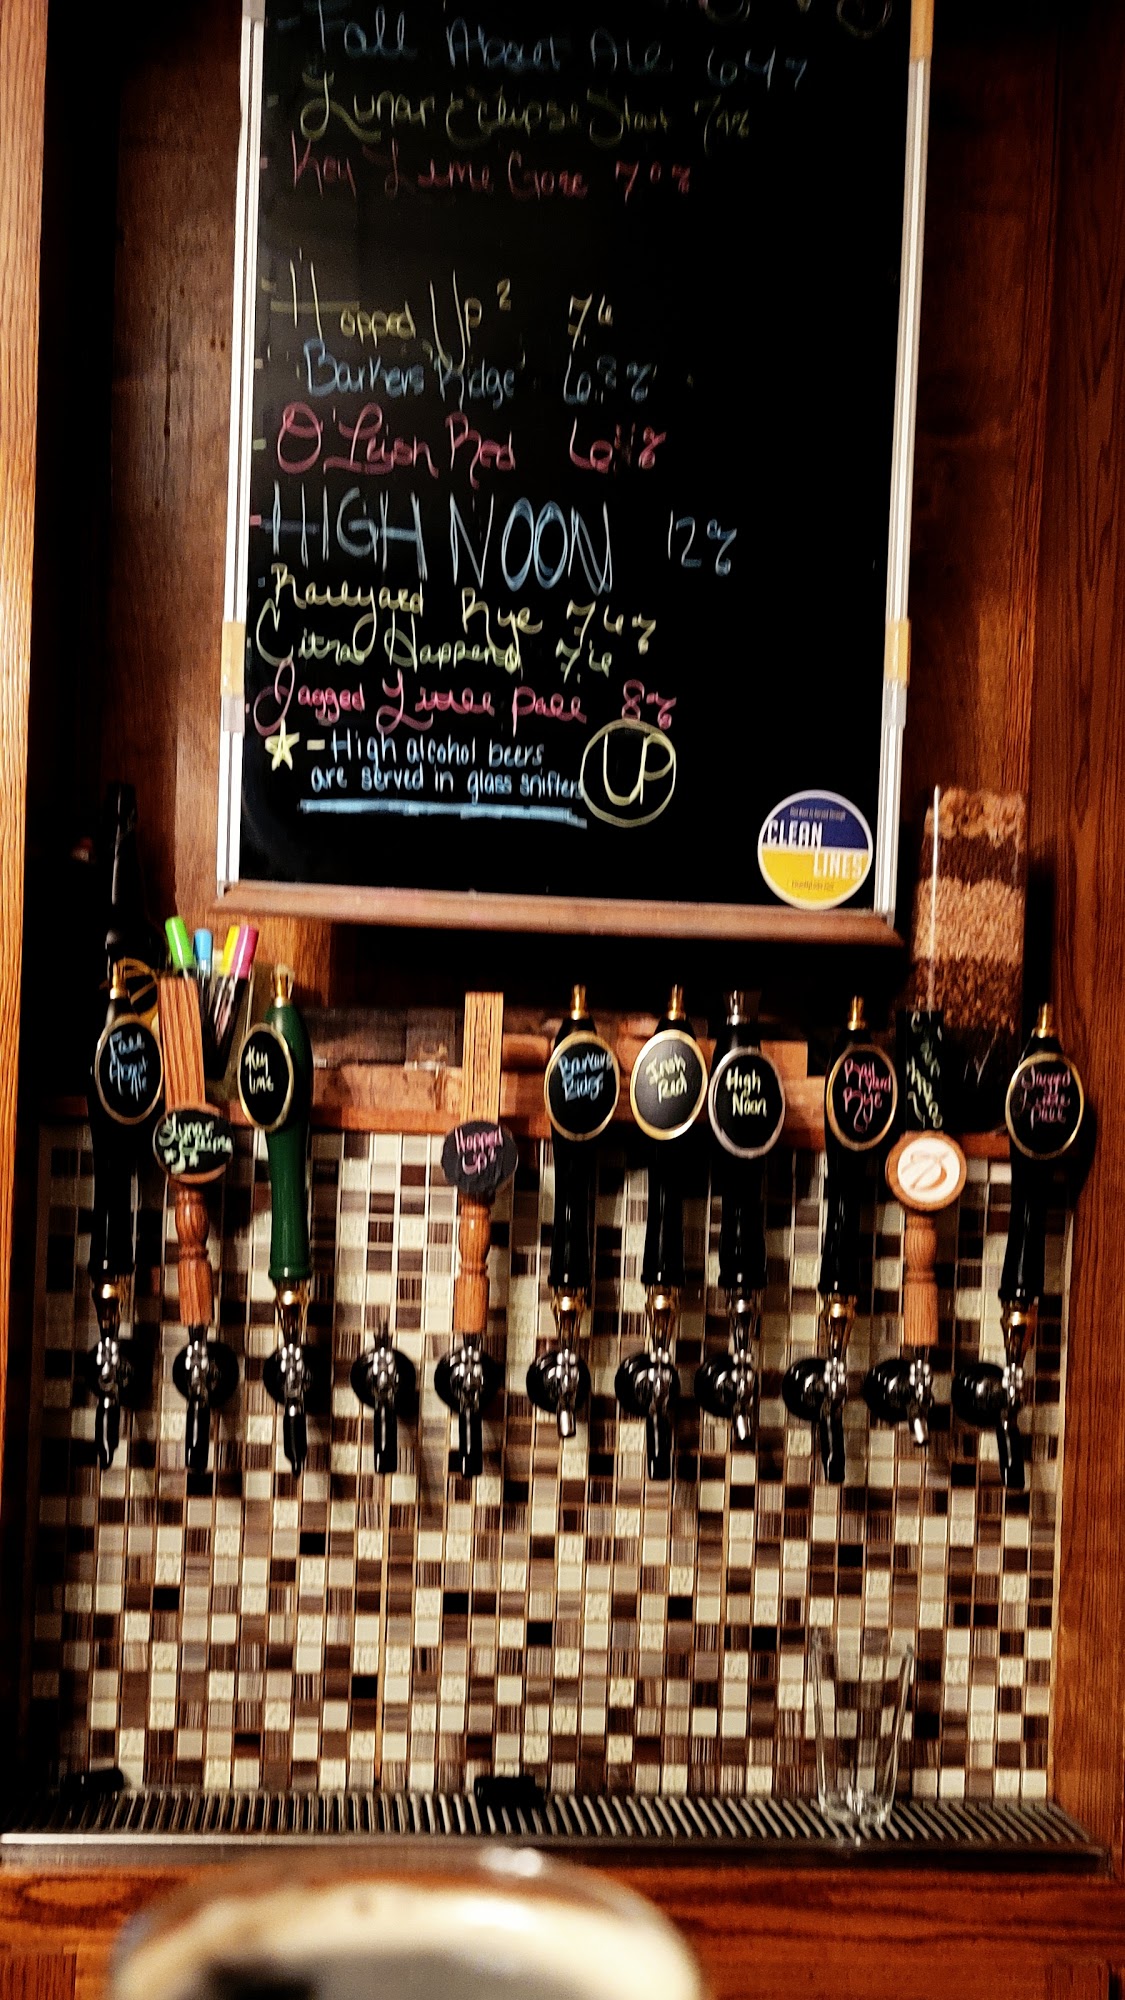 Fall About Ale 6.4%
Lunar Eclipse Stout
Key Lime Gose 7.0%
Hopped Up² 7.6
Barkers Ridge 6.8%
O'Leish Red
HIGH NOON 12%
Raileyard Rye 7.6%
Citra Happend 7.6
Jagged Little Pall 8%
- High alcohol beers
are served in glass snifters
UP
CLEAN
LINES
Fall
About
Ale
Lunar
Eclipse
Key
Lime
Hopped
Up²
Barkers
Ridge
Irish
Red
High
Noon
Rail
yard
Rye
Jagged